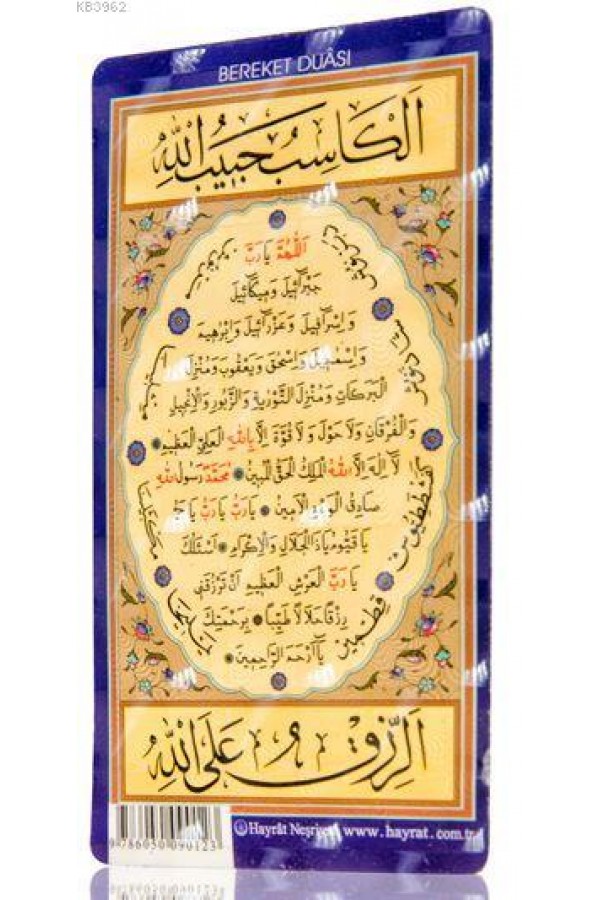 KB3962
BEREKET DUÂSI
اَلْكَاسِبُ حَبِيبُ اللّٰهِ
اَللّٰهُمَّ يَا رَبَّ
جَبْرَائِيلَ وَمِيكَائِيلَ
وَاِسْرَافِيلَ وَعَزْرَائِيلَ وَاِبْرٰهِيمَ
وَاِسْمٰعِيلَ وَاِسْحٰقَ وَيَعْقُوبَ وَمُنْزِلَ
الْبَرَكَاتِ وَمُنْزِلَ التَّوْرٰيةِ وَالزَّبُورِ وَالْاِنْجِيلِ
وَالْفُرْقَانِ وَلَا حَوْلَ وَلَا قُوَّةَ اِلَّا بِاللّٰهِ الْعَلِيِّ الْعَظِيمِ
لَا اِلٰهَ اِلَّا اللّٰهُ الْمَلِكُ الْحَقُّ الْمُبِينُ مُحَمَّدٌ رَسُولُ اللّٰهِ
صَادِقُ الْوَعْدِ الْاَمِينُ يَا رَبُّ يَا رَبُّ يَا حَيُّ
يَا قَيُّومُ يَا ذَا الْجَلَالِ وَالْاِكْرَامِ اَسْئَلُكَ
يَا رَبَّ الْعَرْشِ الْعَظِيمِ اَنْ تَرْزُقَنِي
رِزْقًا حَلَالًا طَيِّبًا بِرَحْمَتِكَ
يَا اَرْحَمَ الرَّاحِمِينَ
يمليخا
مكثلينا
كفشططيوش
قطمير
اَلرِّزْقُ عَلَى اللّٰهِ
Hayrât Neşriyat www.hayrat.com.tr
9 786050 090123